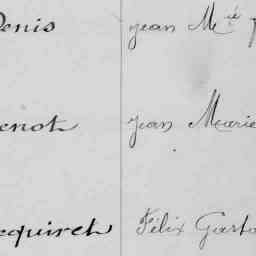 Denis Jean Mie
enot Jean Marie
equiret Félix Gasto